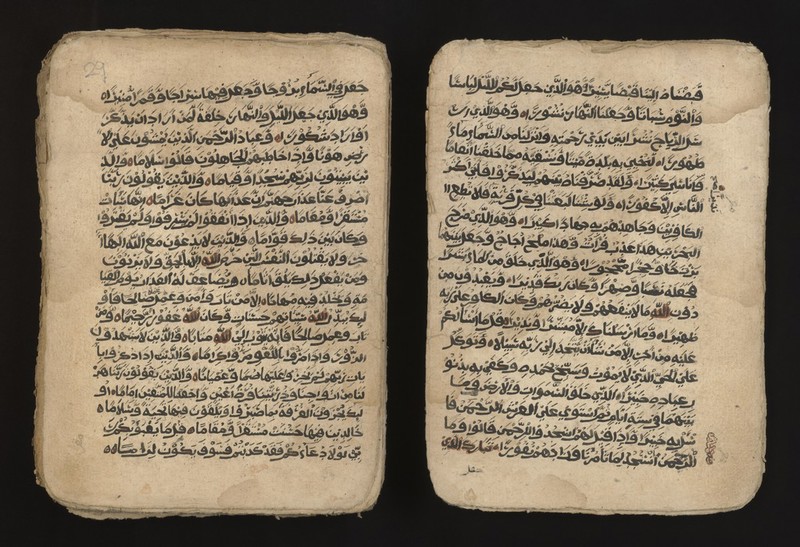 قبضناه الينا قبضا يسيرا وهو الذي جعل لكم الليل لباسا
والنوم سباتا وجعلنا النهار نشورا وهو الذي ار
سل الرياح نشرا بين يدي رحمته وانزلنا من السماء ماء
طهورا لنحيي به بلدة ميتا ونسقيه مما خلقنا انعاما
واناسي كثيرا ولقد صرفناه بينهم ليذكروا فابى اكثر
الناس الا كفورا ولو شئنا لبعثنا في كل قرية فلا تطع ا
نذيرا
لكافرين وجاهدهم به جهادا كبيرا وهو الذي مرج
البحرين هذا عذب فرات وهذا ملح اجاج وجعل بينهما
برزخا وحجرا محجورا وهو الذي خلق من الماء بشرا
فجعله نسبا وصهرا وكان ربك قديرا ويعبدون من
دون الله ما لا ينفعهم ولا يضرهم وكان الكافر على ربه
ظهيرا وما ارسلناك الا مبشرا ونذيرا قل ما اسألكم
عليه من اجر الا من شاء ان يتخذ الى ربه سبيلا وتوكل
على الحي الذي لا يموت وسبح بحمده وكفى به بذنو
ب عباده خبيرا الذي خلق السموات والارض وما
بينهما في ستة ايام ثم استوى على العرش الرحمن فا
سئل به خبيرا واذا قيل لهم اسجدوا للرحمن قالوا وما
الرحمن انسجد لما تامرنا وزادهم نفورا تبارك الذي
جعل
29
جعل في السماء بروجا وجعل فيها سراجا وقمرا منيرا
وهو الذي جعل الليل والنهار خلفة لمن اراد ان يذكر
او اراد شكورا وعباد الرحمن الذين يمشون على الا
رض هونا واذا خاطبهم الجاهلون قالوا سلاما والذ
ين يبيتون لربهم سجدا وقياما والذين يقولون ربنا
اصرف عنا عذاب جهنم ان عذابها كان غراما انها ساءت
مستقرا ومقاما والذين اذا انفقوا لم يسرفوا ولم يقتروا
وكان بين ذلك قواما والذين لا يدعون مع الله الها ا
خر ولا يقتلون النفس التي حرم الله الا بالحق ولا يزنون
ومن يفعل ذلك يلق اثاما يضاعف له العذاب يوم القيا
مة ويخلد فيه مهانا الا من تاب وامن وعمل صالحا فاو
لئك يبدل الله سيئاتهم حسنات وكان الله غفورا رحيما ومن
تاب وعمل صالحا فانه يتوب الى الله متابا والذين لا يشهدون
الزور واذا مروا باللغو مروا كراما والذين اذا ذكروا با
يات ربهم لم يخروا عليها صما وعميانا والذين يقولون ربنا هب
لنا من ازواجنا وذرياتنا قرة اعين واجعلنا للمتقين اماما او
لئك يجزون الغرفة بما صبروا ويلقون فيها تحية وسلاما
خالدين فيها حسنت مستقرا ومقاما قل ما يعبؤ بكم
ربي لولا دعاؤكم فقد كذبتم فسوف يكون لزاما